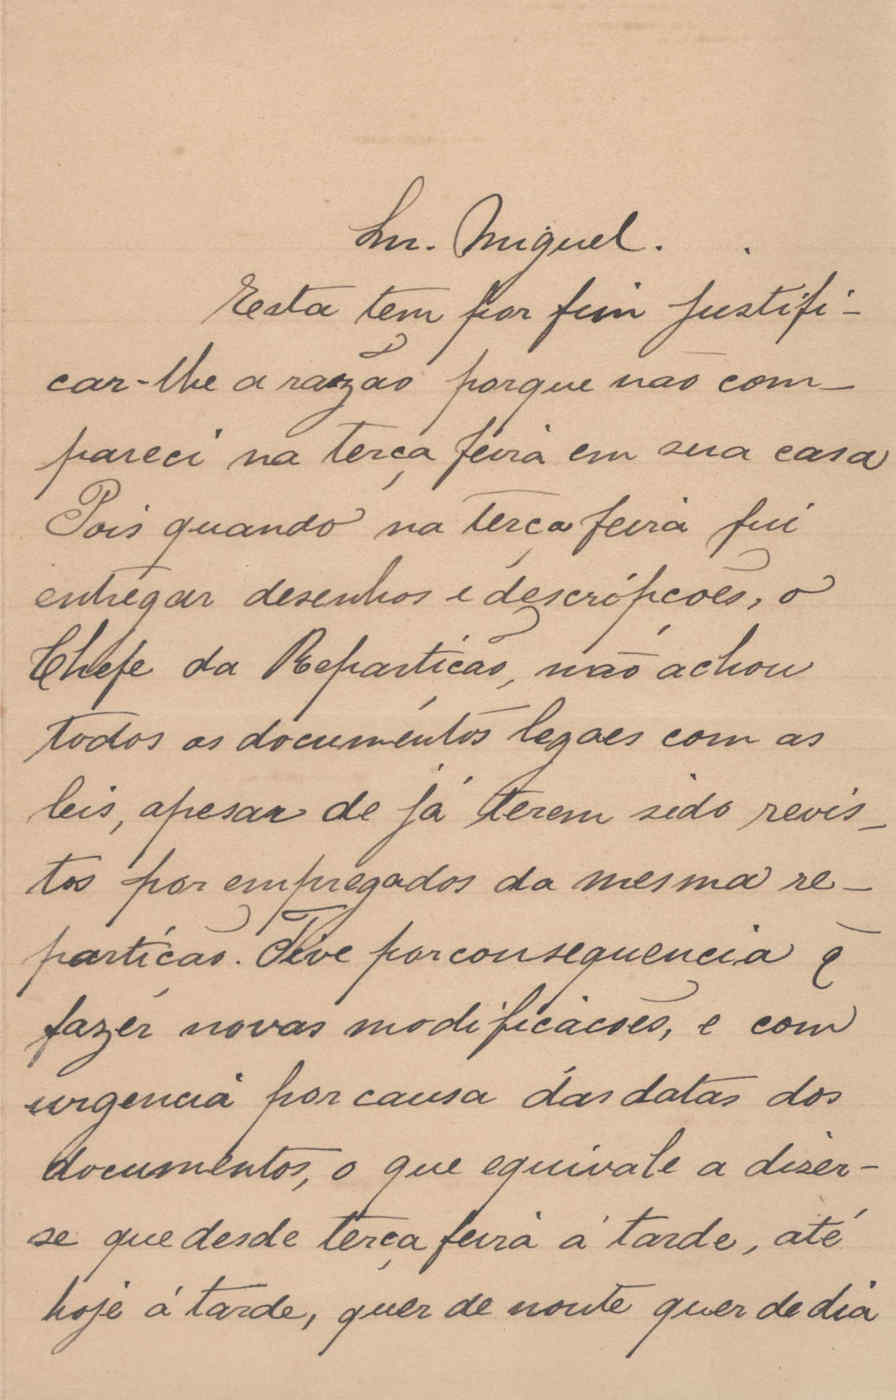 Snr. Miguel.
Esta tem por fim justifi-
car-lhe a razão porque não com-
pareci na terça feira em sua casa
Pois quando na terça feira fui
entregar desenhos e descripcões, o
Chefe da Reparticão, não achou
todos os documentos legaes com as
leis, apesar de já terem sido revis-
tos por empregados da mesma re-
particão. Tive por consequencia q̃
fazer novas modificacões, e com
urgencia por causa das datas dos
documentos, o que equivale a dizer-
se que desde terça feira á tarde, até
hoje á tarde, quer de noute quer de dia